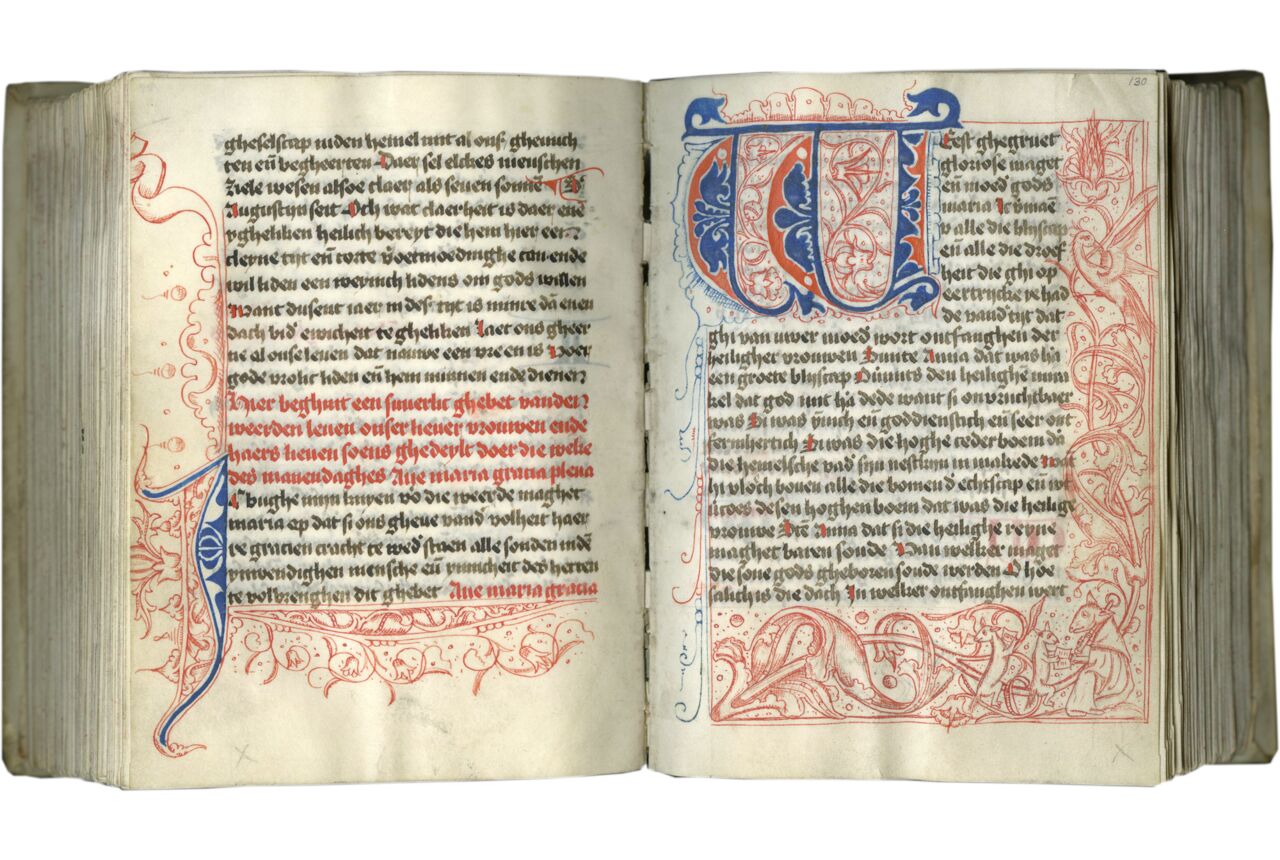 gheselscap inden hemel mit al onse ghenuch
ten en̄ begheerten Daer sel elches menschen
ziele wesen alsoe claer als seuen sonnē S
Augustijn seit Och wat claerheit is daer ene
yghelikken heilich bereyt die hem hier een
cleyne tijt en̄ corte v̄oetmoedinghe can ende
wil liden een weynich lidens om gods willen
Want dusent iaer in deser tijt is min dā enen
dach bid' ewicheit te ghelikken Iaer ons gheer
ne al onse leuen dat nauwe een vre en is Voer
gode vrolic liden en̄ hem minnen ende dienen
Hier beghint een suuerlic ghebet vander
weerden leuen onser lieuer vrouwen ende
haers lieuen soens ghedeylt doer die welke
des manendaghes Aue maria gracia plena
Ic bughe mijn knyen vo die weerde maghet
maria ep dat si ons gheue vand' volheit haer
re gracien cracht te wed' staen alle sonden indē
ynwendighen mensche en̄ reinicheit des herten
te volbrenghen dit ghebet Aue maria gracia
130
Weest ghegruet
gloriose maget
en̄ moed' gods
maria Ic v̄mae
v alle die bliscap
en̄ alle die droef
heit die ghi op
eertrijcke ye had
de vand' tijt dat
ghi van uwer moed' wort ontfanghen der
heiligher vrouwen sunte Anna dat was hā
een groete bliscap Ouermits den heilighe mira
kel dat god mit hā dede want si onvruchtbaer
was Si was yn̄ich en̄ goddienstich en̄ seer ont
fermhertich Si was die hoghe ceder boem dā
die hemelsche vad' sijn nestkijn in makede Want
hi vloch bouen alle die bomen d' echtscap en̄ wt
v̄coes desen hoghen boem dat was die heilighe
vrouwe Ste Anna dat si die heilighe reyne
maghet baren soude Van welker maget
die sone gods gheboren soude werden O hoe
salich is die dach In welker ontfanghen wert